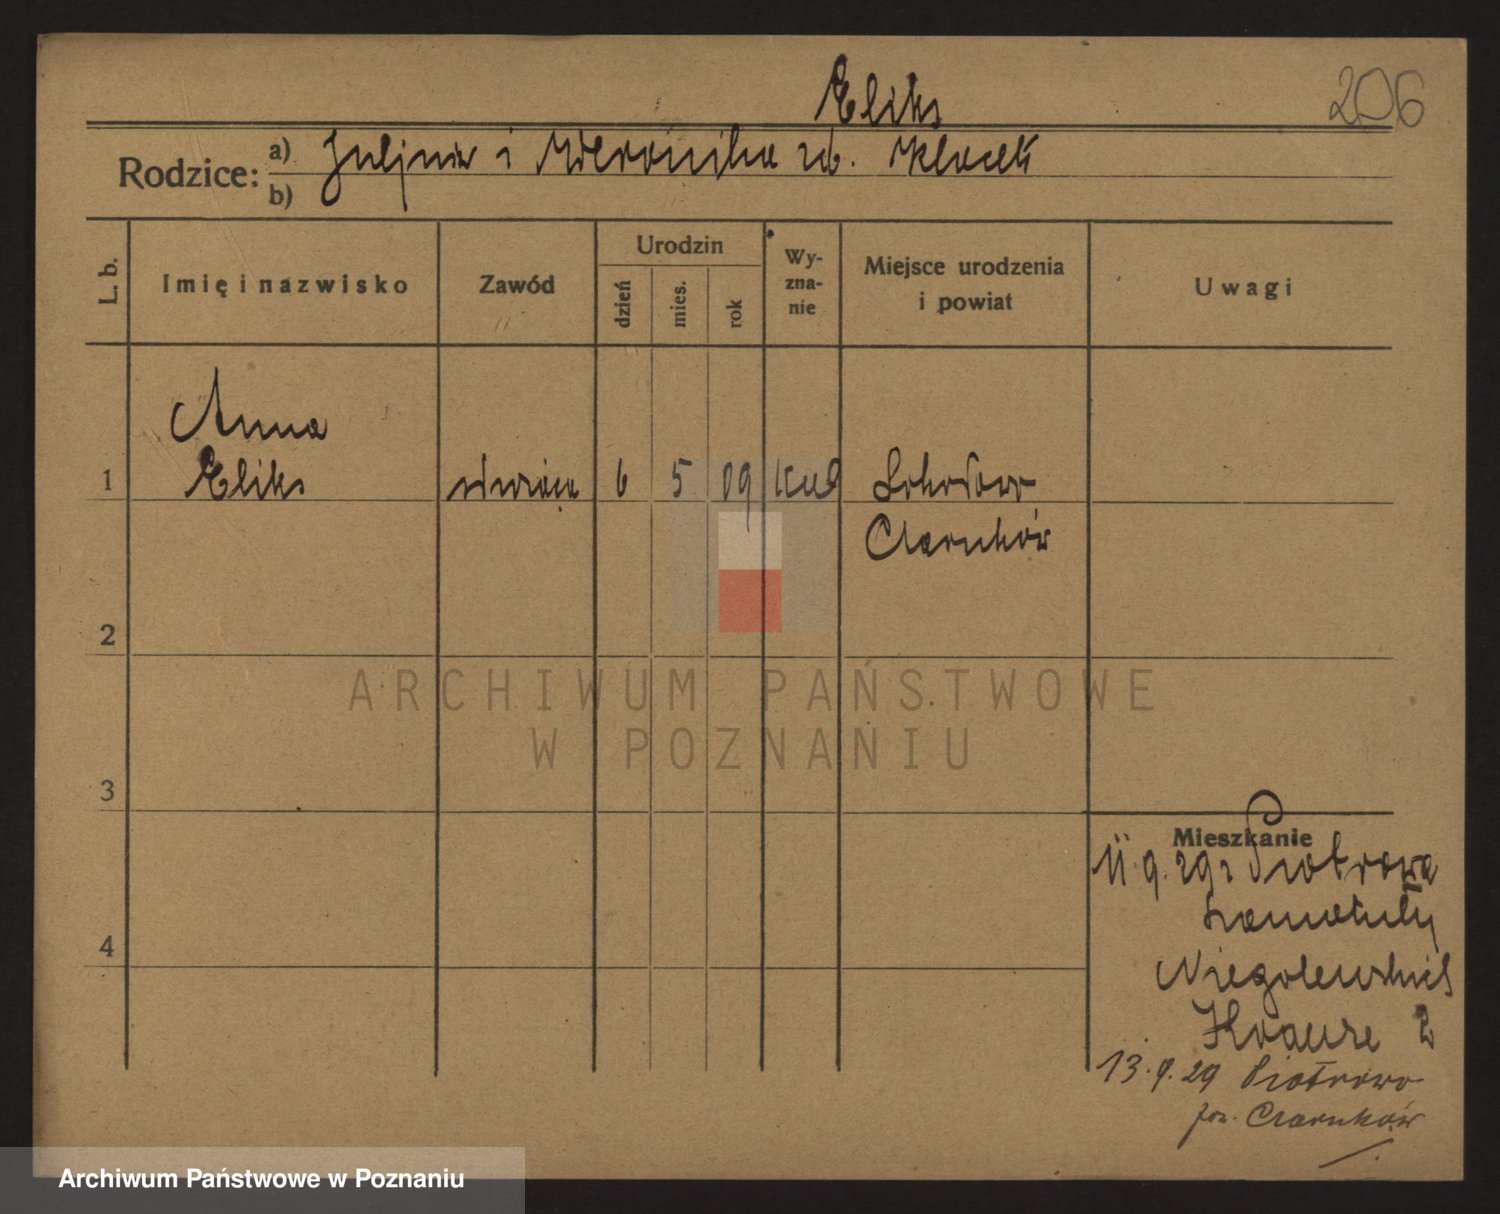 Eliks
206
Rodzice:
a) Juljan i Weronika ur. Klacek
b)
L. b.
Imię i nazwisko
Zawód
Urodzin
dzień
mies.
rok
Wy-
zna-
nie
Miejsce urodzenia
i powiat
Uwagi
Anna
1 Eliks 6 5 09 kat
Czarnków
2
3
4
ARCHIWUM PAŃSTWOWE
W POZNANIU
Mieszkanie
11.9.29 z Piotrowa
Szamotuły
Niegolewskich
Krause 2
13.9.29 Piotrowo
pow. Czarnków
Archiwum Państwowe w Poznaniu